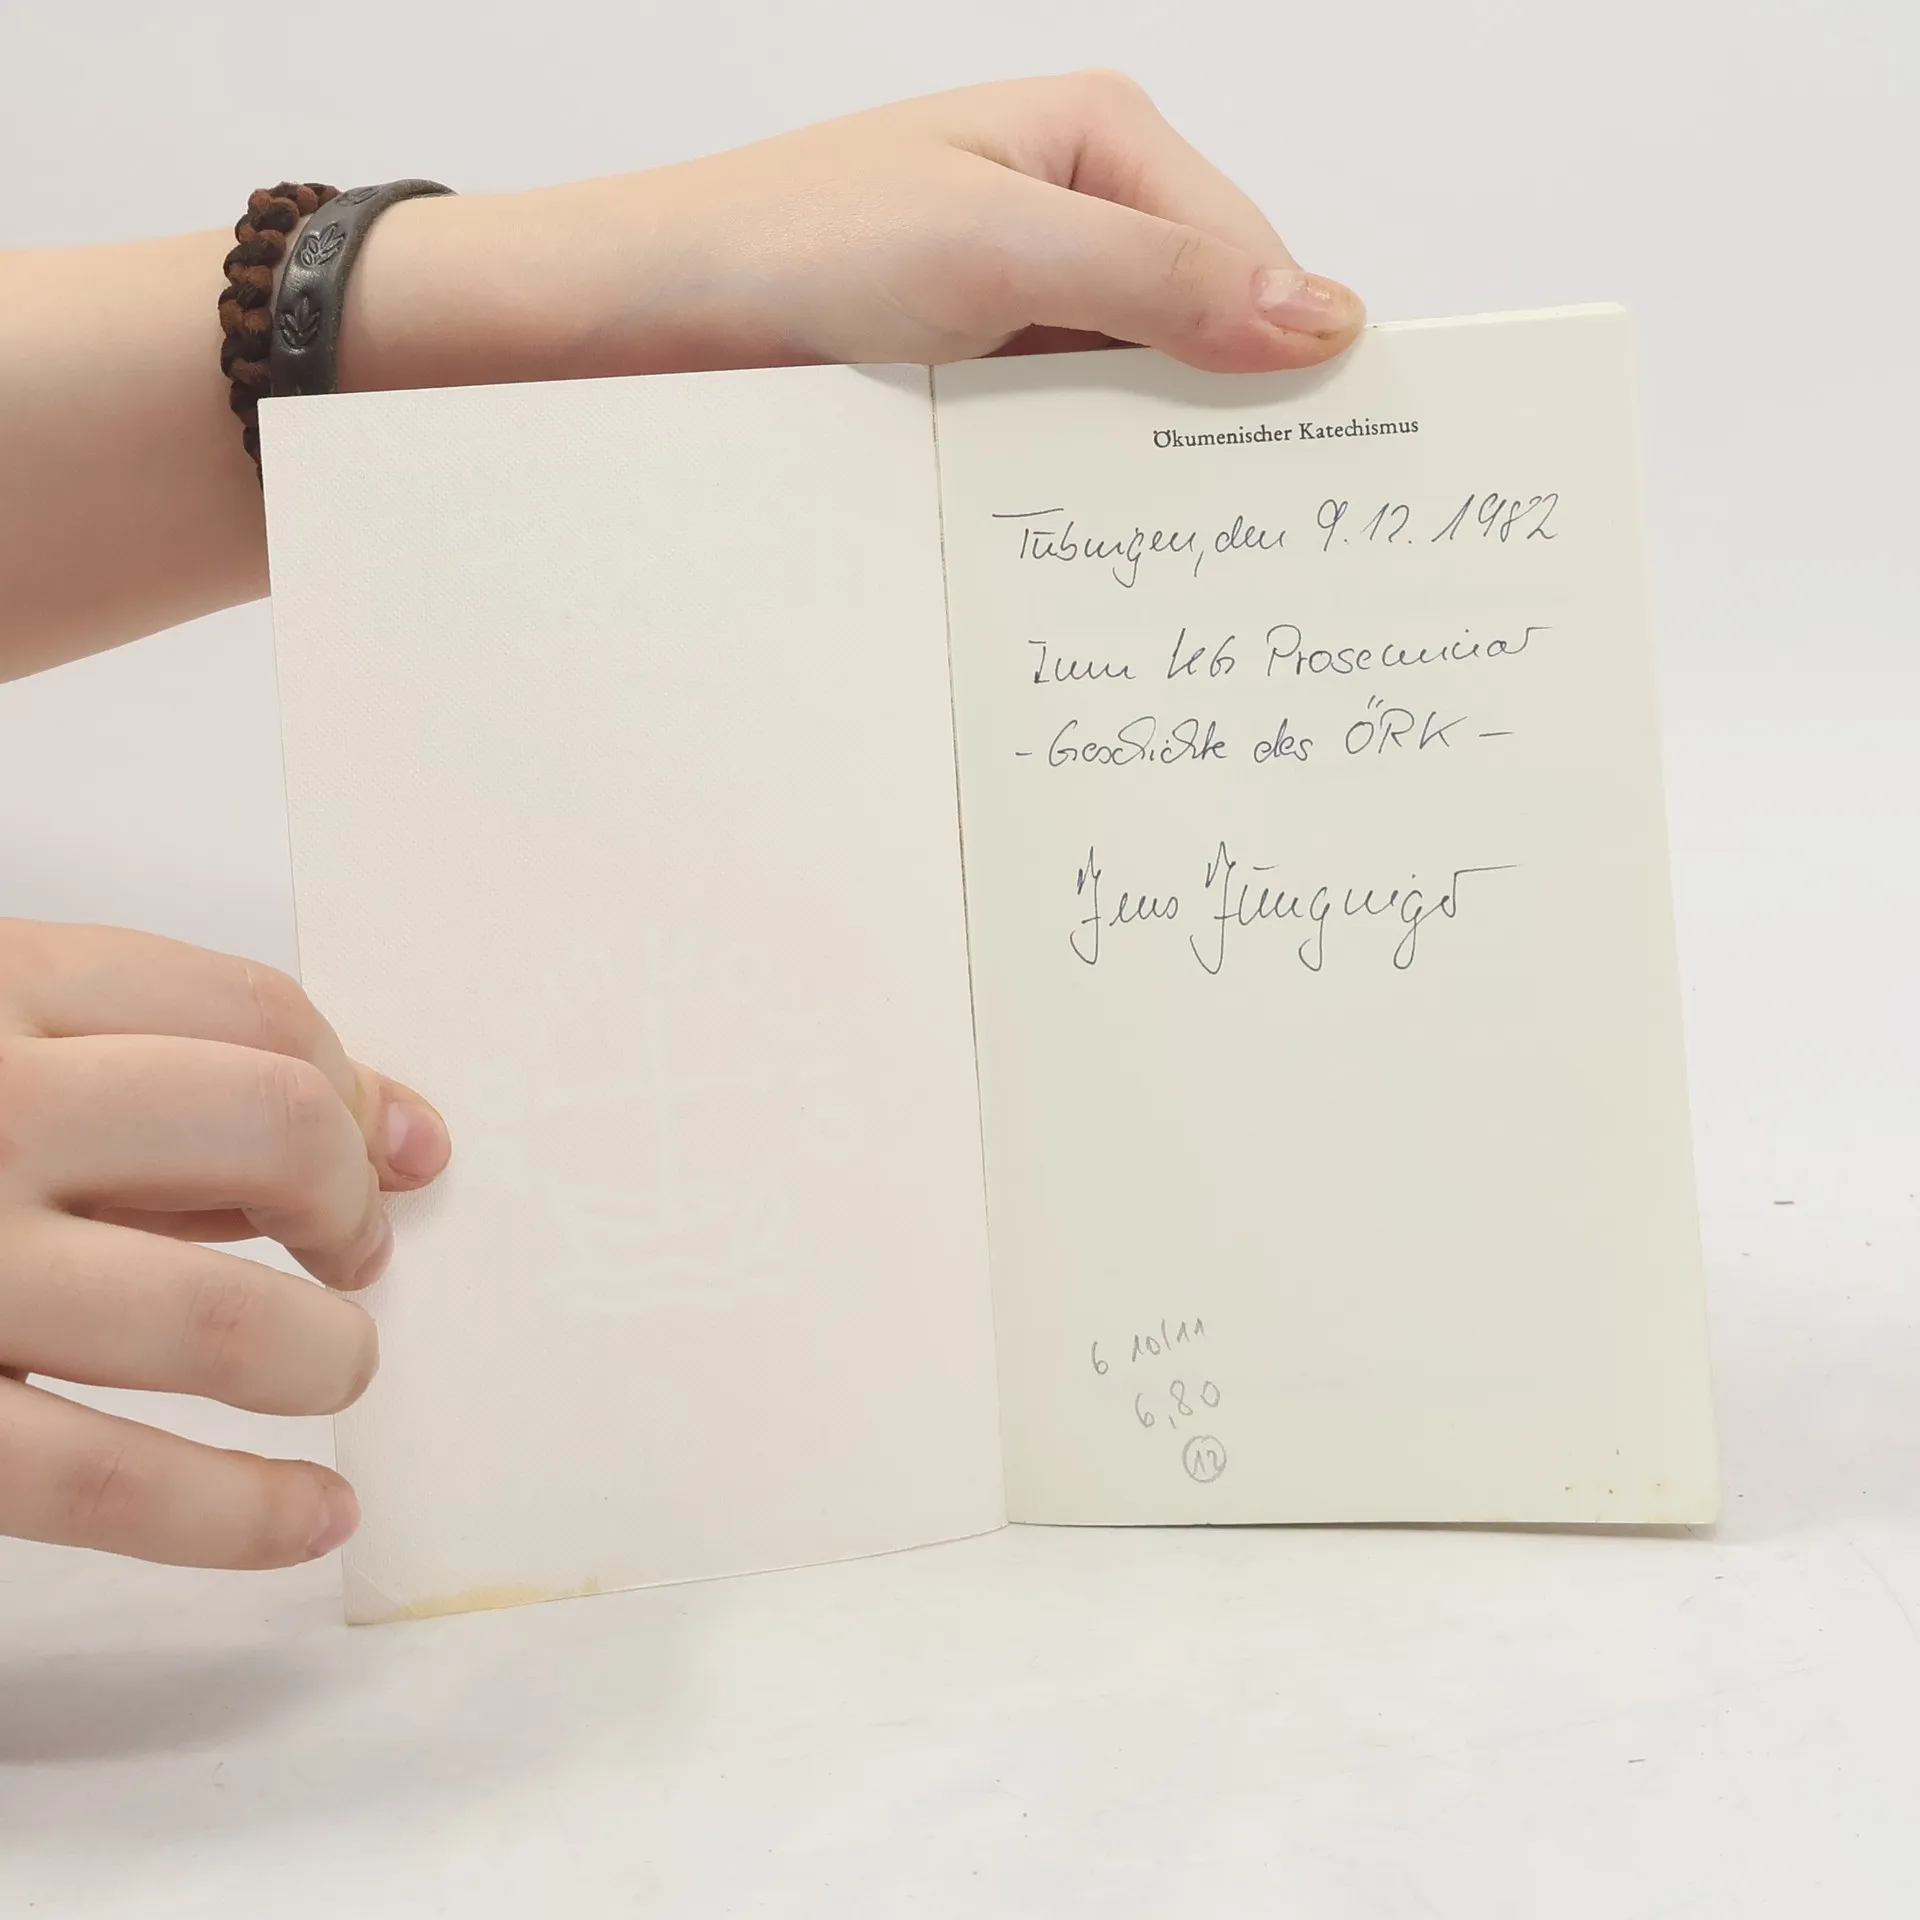 Ökumenischer Katechismus
Tübingen, den 9.12.1982
Zum KG Proseminar
- Geschichte des ÖRK -
Jens
6 10/11
6,80
12